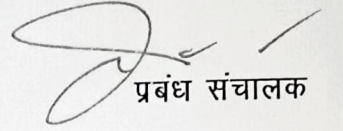 प्रबंध संचालक